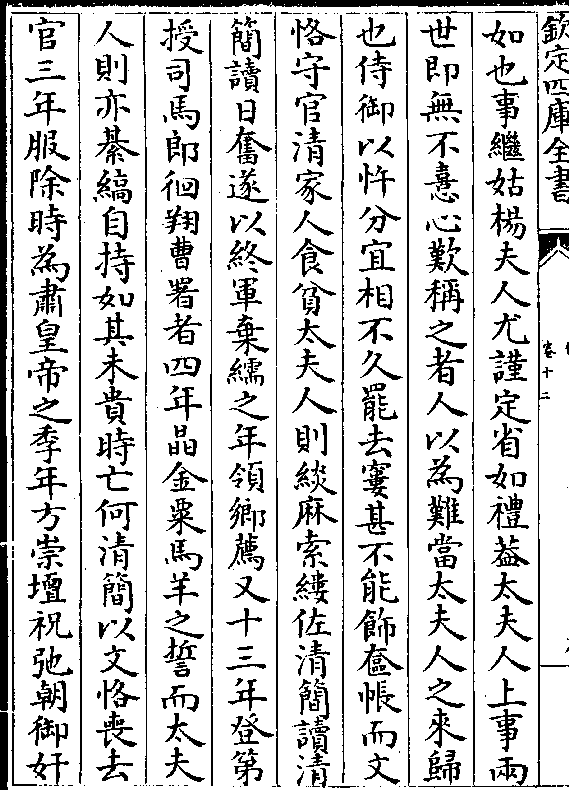 欽定四庫全書
卷十二
如也事繼姑楊夫人尤謹定省如禮葢太夫人上事兩
世即無不憙心歎稱之者人以為難當太夫人之來歸
也侍御以忤分宜相不久罷去寠甚不能飾奩帳而文
恪守官清家人食貧太夫人則緂麻索縷佐清簡讀清
簡讀日奮遂以終軍棄繻之年領鄉薦又十三年登第
授司馬郎徊翔曹署者四年晶金粟馬羊之誓而太夫
人則亦綦縞自持如其未貴時亡何清簡以文恪喪去
官三年服除時為肅皇帝之季年方崇壇祝弛朝御奸